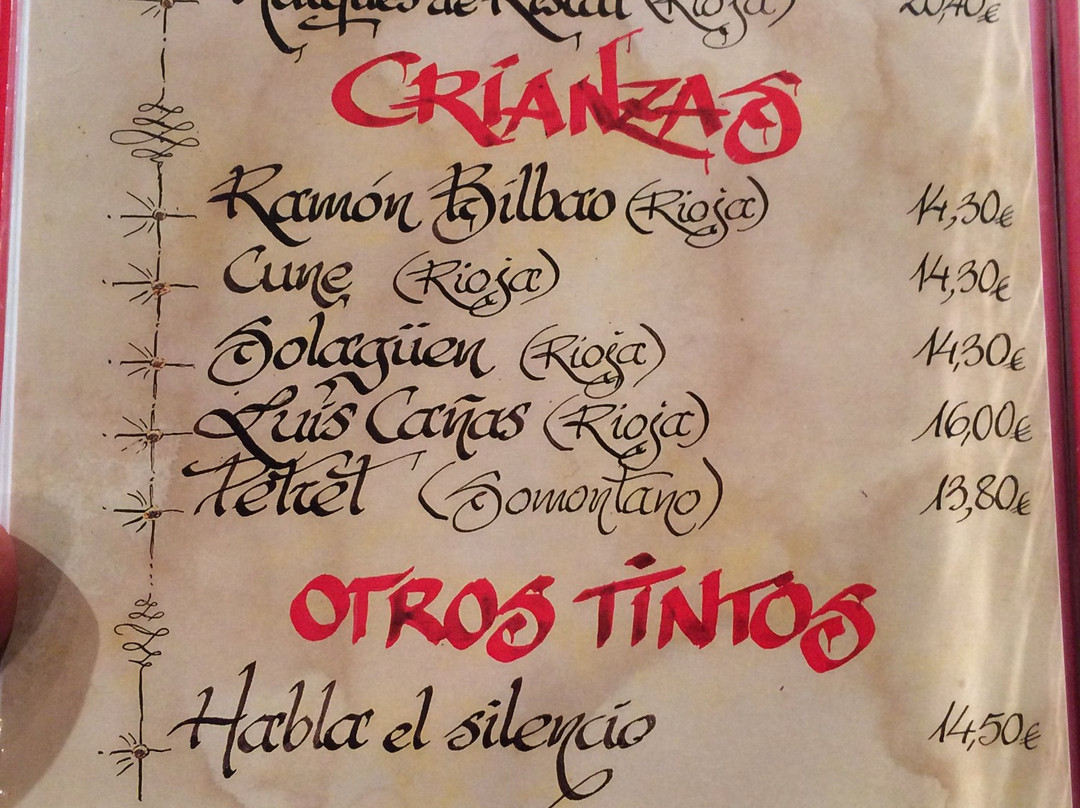 Marqués de Riscal (Rioja) 20,40€
CRIANZAS
Ramón Bilbao (Rioja) 14,30€
Cune (Rioja) 14,30€
Solagüen (Rioja) 14,30€
Luis Cañas (Rioja) 16,00€
Petret (Somontano) 13,80€
OTROS TINTOS
Habla el silencio 14,50€